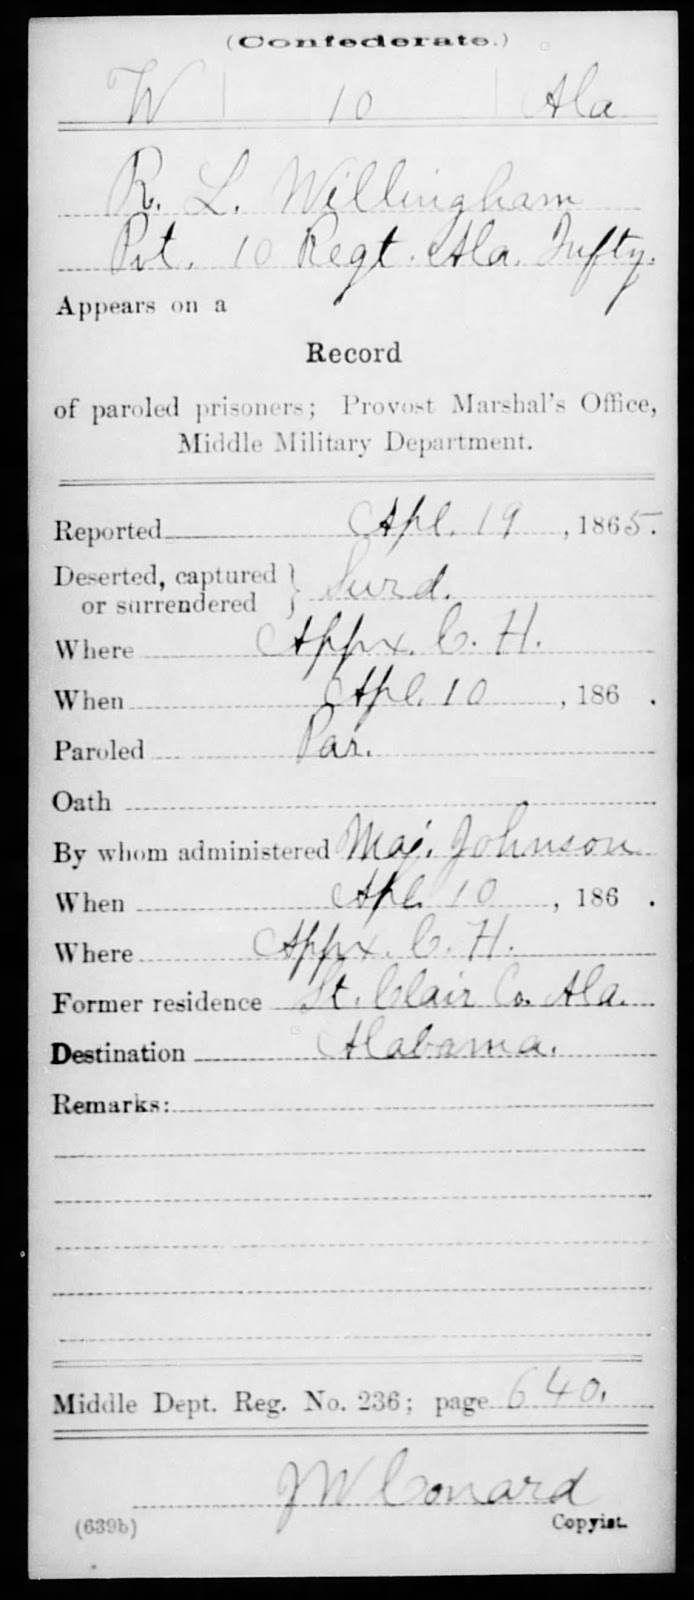 (Confederate.)
W 10 Ala
R. L. Willingham
Pvt. 10 Regt. Ala. Infty.
Appears on a
Record
of paroled prisoners; Provost Marshal's Office,
Middle Military Department.
Reported Apl. 19, 1865.
Deserted, captured
or surrendered } Surd.
Where Appx. C. H.
When Apl. 10, 186 .
Paroled Par.
Oath
By whom administered Maj. Johnson
When Apl. 10, 186 .
Where Appx. C. H.
Former residence St. Clair Co. Ala.
Destination Alabama.
Remarks:
Middle Dept. Reg. No. 236; page 640.
J W Conard
(639b) Copyist.